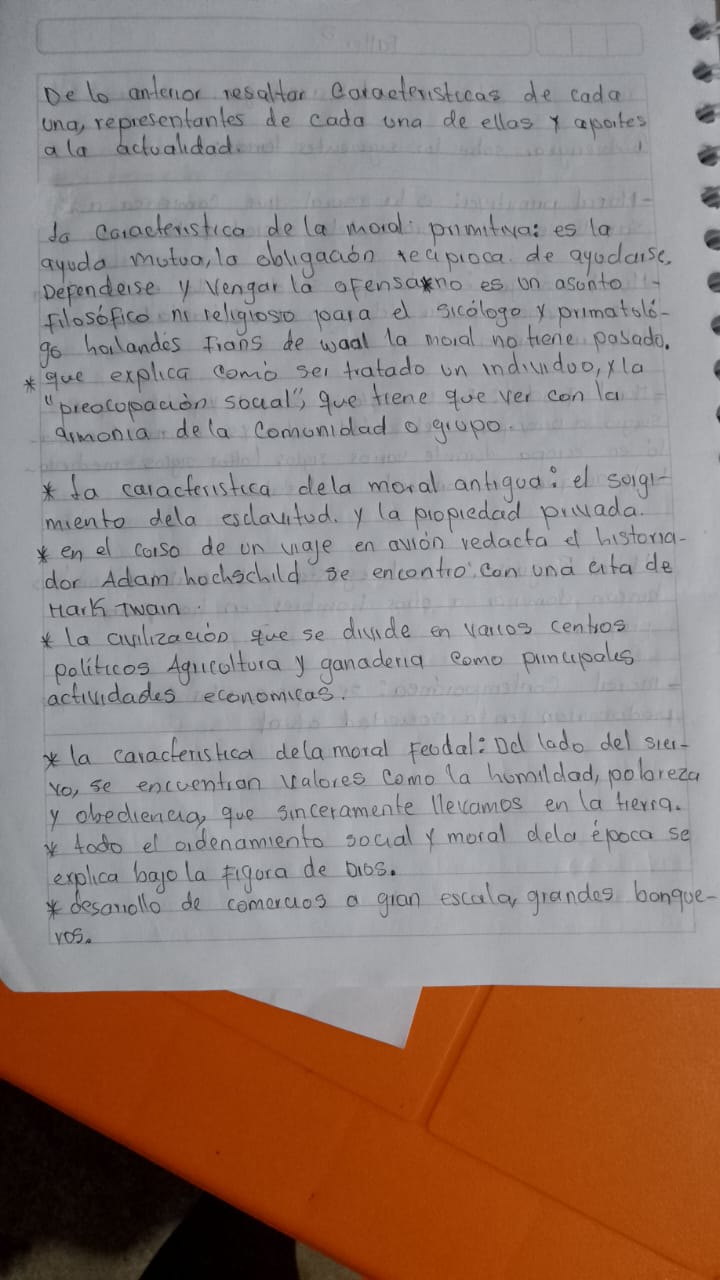 De lo anterior resaltar Caracteristicas de cada
una, representantes de cada una de ellas y aportes
a la actualidad.
la Caracteristica de la moral primitiva: es la
ayuda mutua, la obligación reciproca de ayudarse,
Defenderse y Vengar la ofensa no es un asunto
filosófico ni religioso para el sicólogo y primatoló-
go holandés Frans de waal la moral no tiene pasado.
* que explica como ser tratado un individuo, y la
"preocupación social", que tiene que ver con la
armonia de la Comunidad o grupo.
* la caracteristica dela moral antigua: el surgi-
miento dela esclavitud. y la propiedad privada.
* en el curso de un viaje en avión redacta el historia-
dor Adam hochschild se encontro con una cita de
Mark Twain.
* la civilización que se divide en varios centros
politicos Agricultura y ganaderia como principales
actividades economicas.
* la caracteristica dela moral Feudal: Del lado del sier-
vo, se encuentran valores como la humildad, pobreza
y obediencia, que sinceramente llevamos en la tierra.
* todo el ordenamiento social y moral dela época se
explica bajo la Figura de Dios.
* desarrollo de comercios a gran escala, grandes banque-
ros.